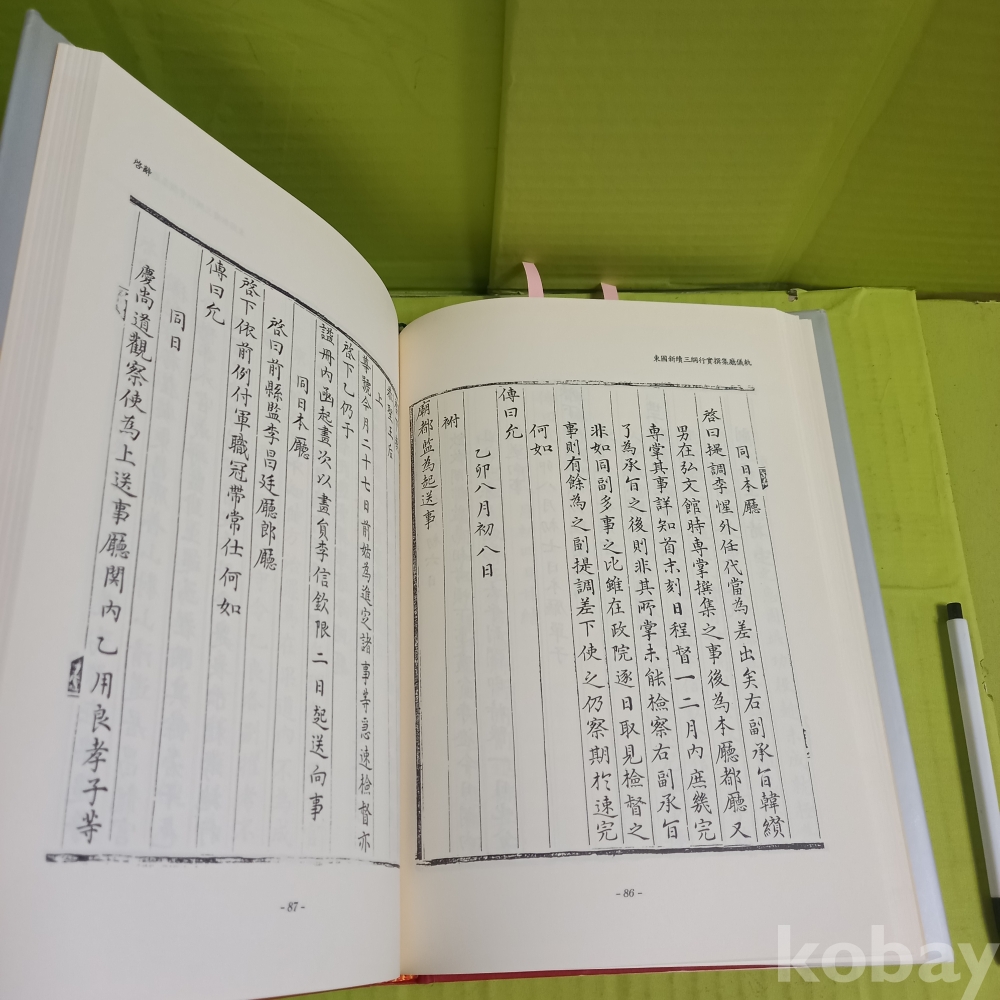 東國新續三綱行實撰集廳儀軌
同日本廳
啓曰提調李惺外任代當為差出矣右副承旨韓纘
男在弘文館時專掌撰集之事後為本廳都廳又
專掌其事詳知首末刻日程督一二月內庶幾完
了為承旨之後則非其所掌未能檢察右副承旨
非如同副多事之比雖在政院逐日取見檢督之
事則有餘為之副提調差下使之仍察期於速完
何如
傳曰允
乙卯八月初八日
祔
廟都監為起送事
- 86 -
啓辭
上
等牒今月二十七日前姑為進定諸事等急速檢督亦
啓下乙仍于
謚冊內函起畫次以畫員李信欽限二日起送向事
同日本廳
啓曰前縣監李昌廷廳郎廳
啓下依前例付軍職冠帶常仕何如
傳曰允
同日
慶尚道觀察使為上送事廳關內乙用良孝子等
- 87 -
kobay